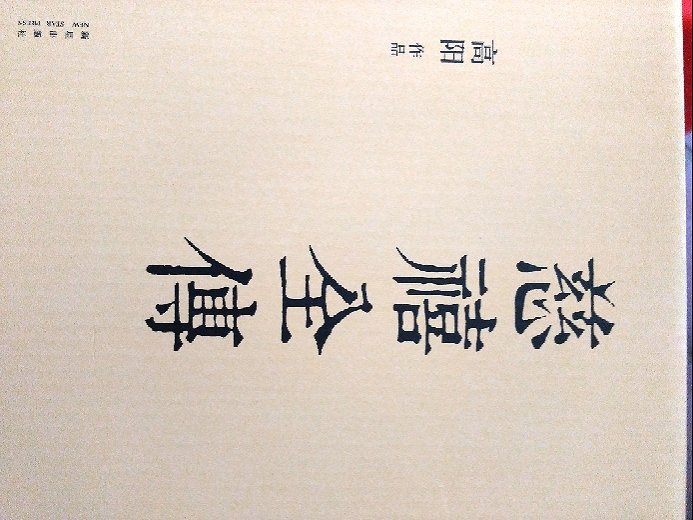 慈禧全傳
高阳 作品
新星出版社
NEW STAR PRESS